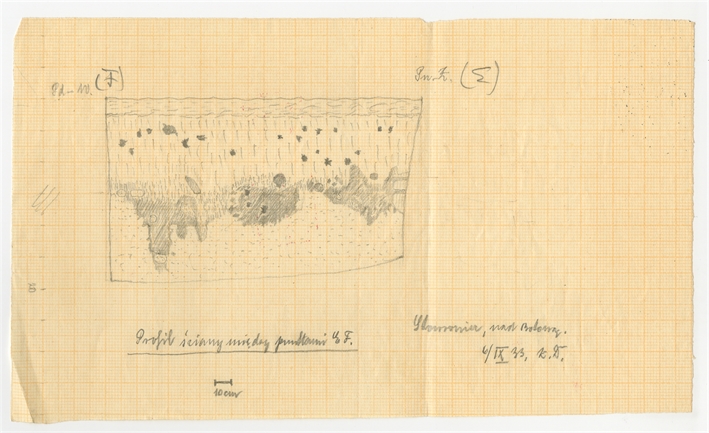 Pd-W. (F)
Pn.Z. (Σ)
5-
Profil ściany między punktami Σ F.
nad
6/IX 33, K.D.
10 cm